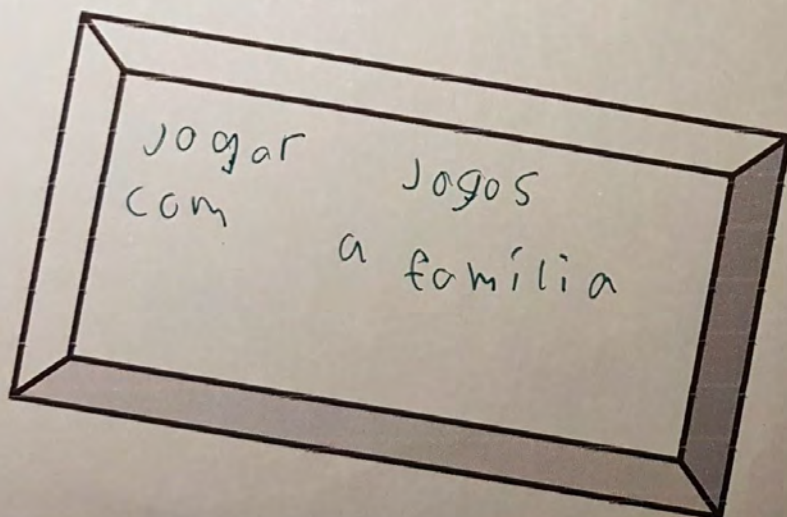 Jogar Jogos
com a família